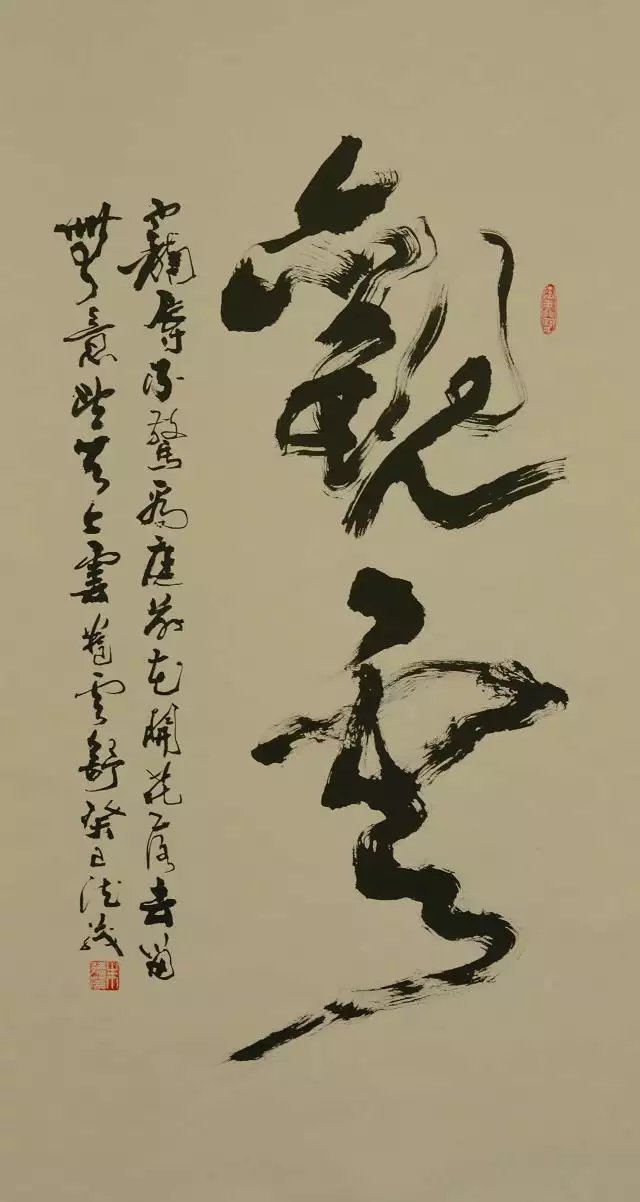 觀雲
寵辱不驚看庭前花開花落去留
無意望天上雲卷雲舒癸巳